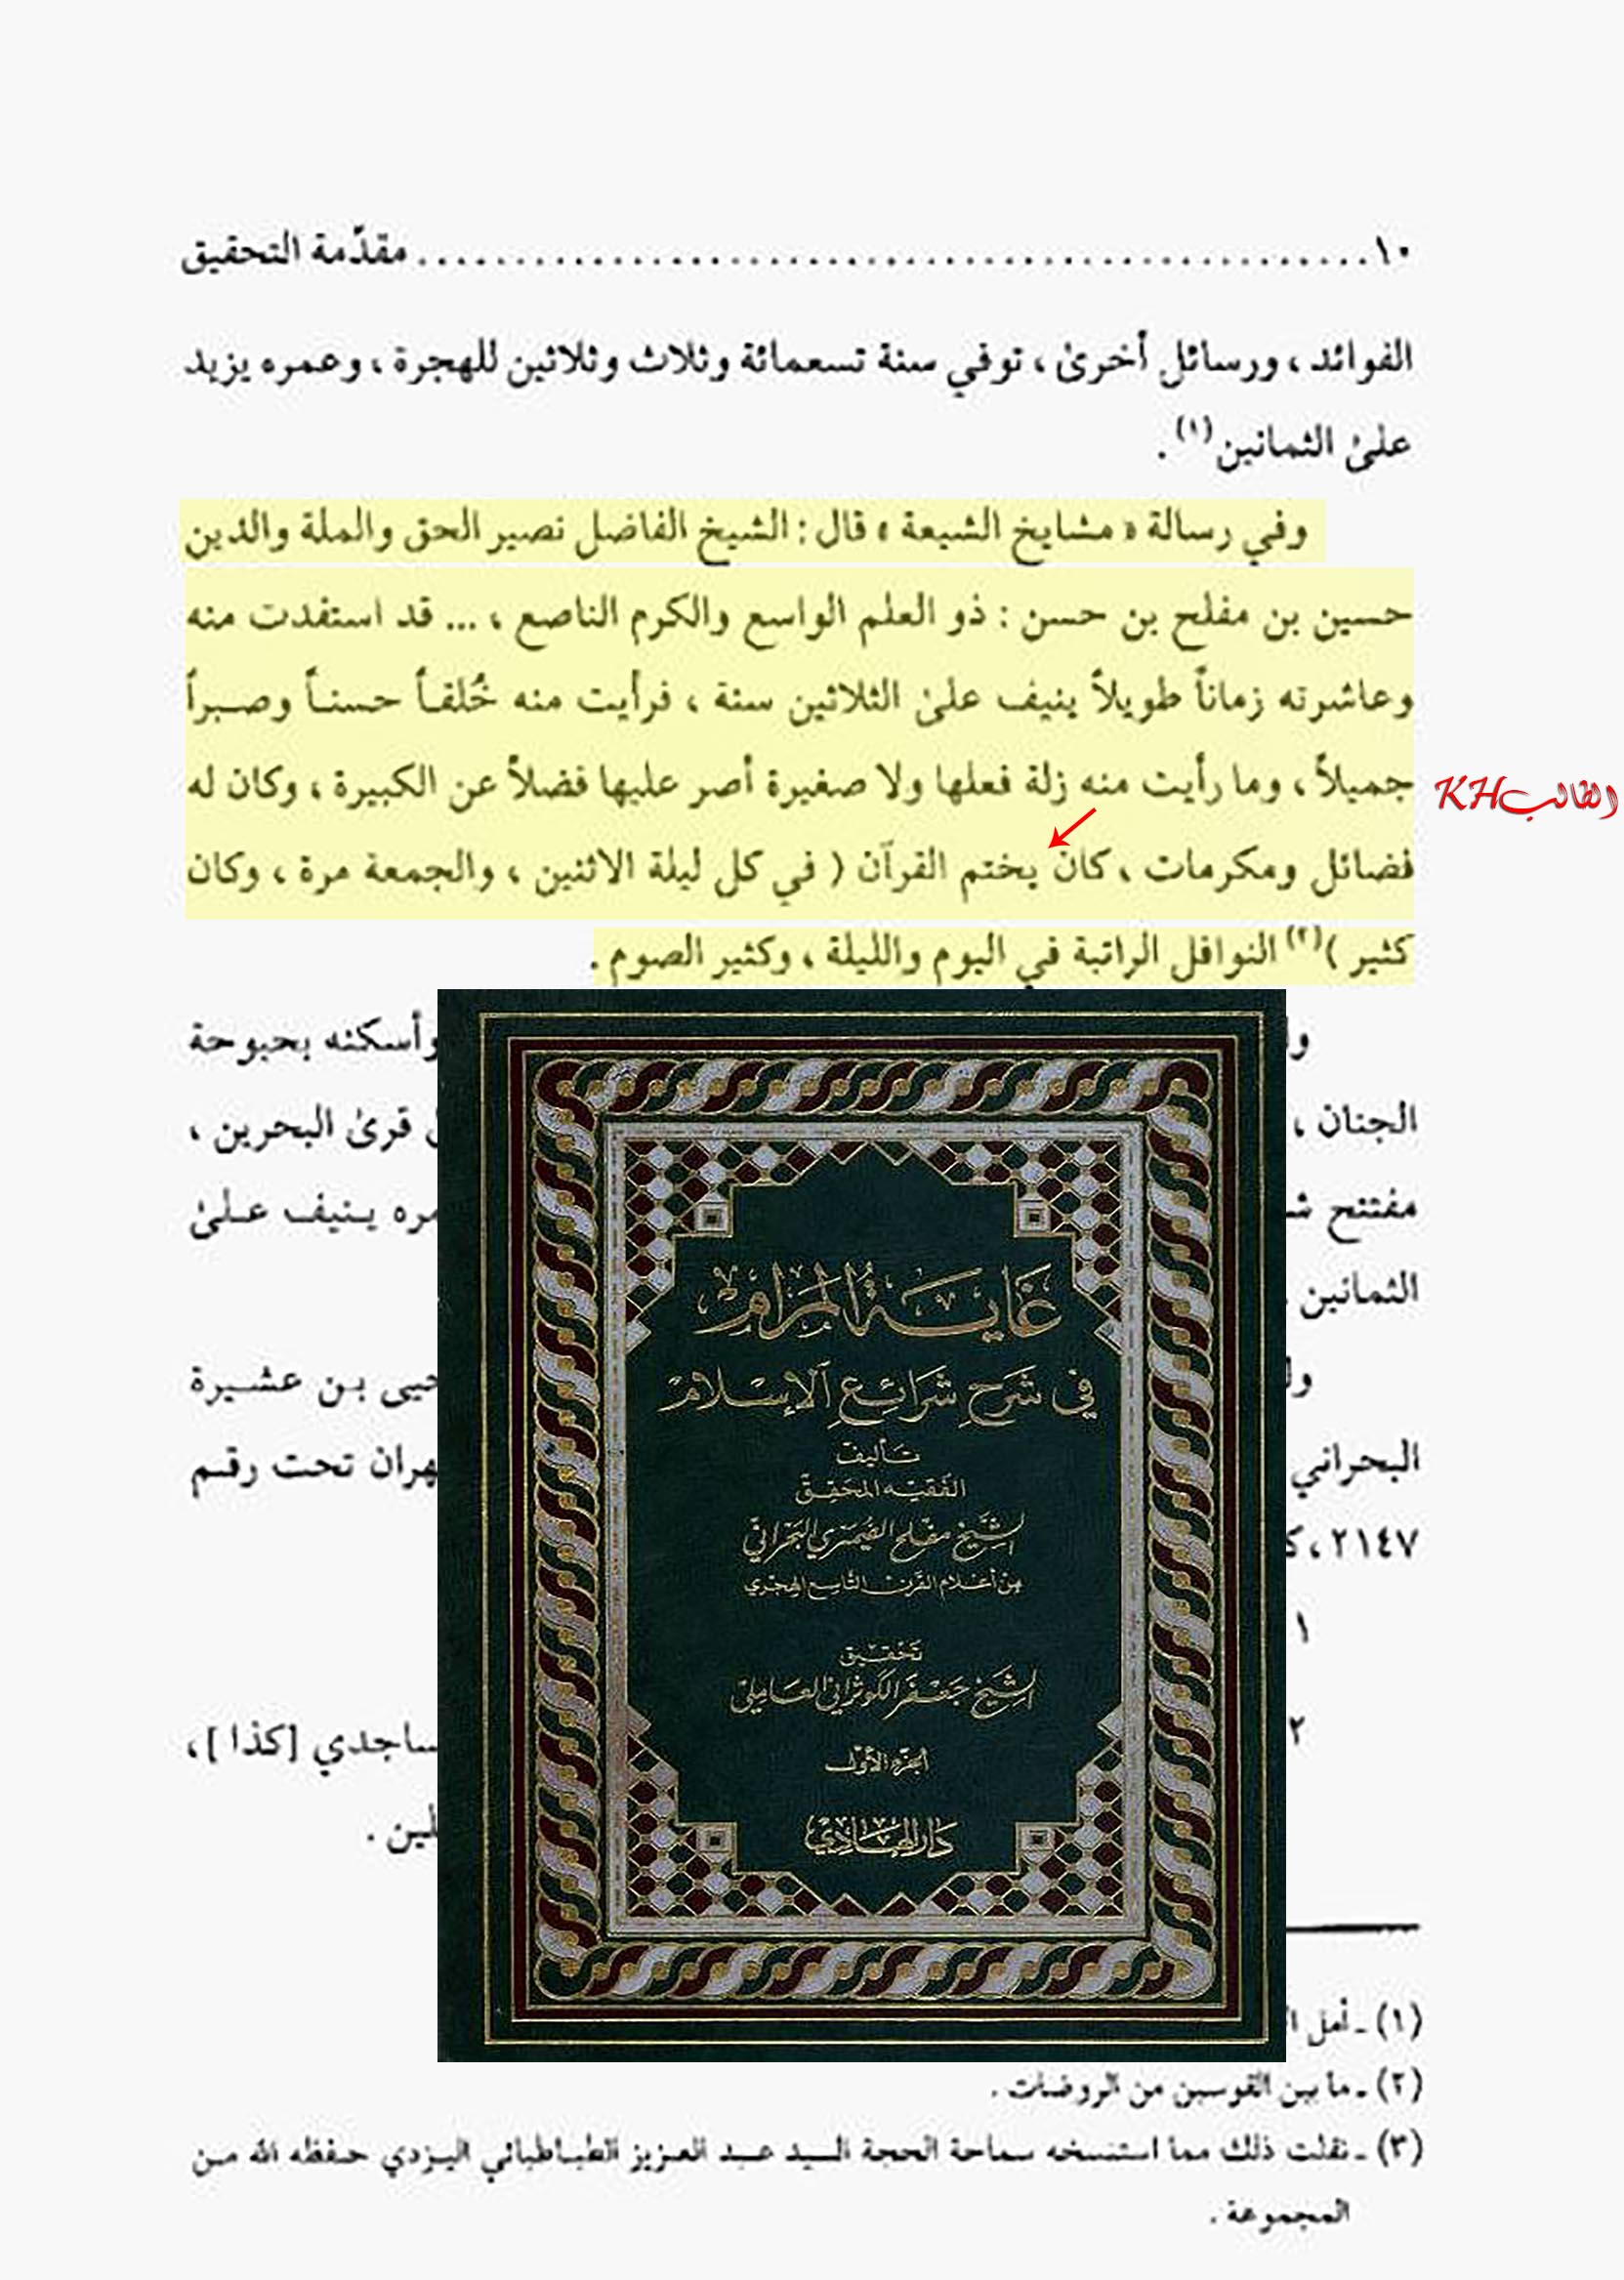 ١٠ ........................................................ مقدّمة التحقيق
الفوائد ، ورسائل أخرىٰ ، توفي سنة تسعمائة وثلاث وثلاثين للهجرة ، وعمره يزيد
علىٰ الثمانين(١) .
وفي رسالة « مشايخ الشيعة » قال : الشيخ الفاضل نصير الحق والملة والدين
حسين بن مفلح بن حسن : ذو العلم الواسع والكرم الناصع ، ... قد استفدت منه
وعاشرته زماناً طويلاً ينيف علىٰ الثلاثين سنة ، فرأيت منه خُلقاً حسناً وصبراً
جميلاً ، وما رأيت منه زلة فعلها ولا صغيرة أصر عليها فضلاً عن الكبيرة ، وكان له
الطالب KH
فضائل ومكرمات ، كان يختم القرآن ( في كل ليلة الاثنين ، والجمعة مرة ، وكان
كثير )(٢) النوافل الراتبة في اليوم والليلة ، وكثير الصوم .
وأسكنه بحبوحة
الجنان ، قرىٰ البحرين ،
مفتتح ينيف علىٰ
الثمانين
بن عشيرة
البحراني تحت رقم
٢١٤٧ ،
١
٢ [كذا ] ،
غاية المرام
في شرح شرائع الإسلام
تأليف
الفقيه المحقق
الشيخ مفلح الصيمري البحراني
من أعلام القرن التاسع الهجري
تحقيق
الشيخ جعفر الكوثراني العاملي
الجزء الأول
دار الهادي
(١) ـ أمل
(٢) ـ ما بين القوسين من الروضات .
(٣) ـ نقلت ذلك مما استنسخه سماحة الحجة السيد عبد العزيز الطباطبائي اليزدي حفظه الله من
المجموعة .